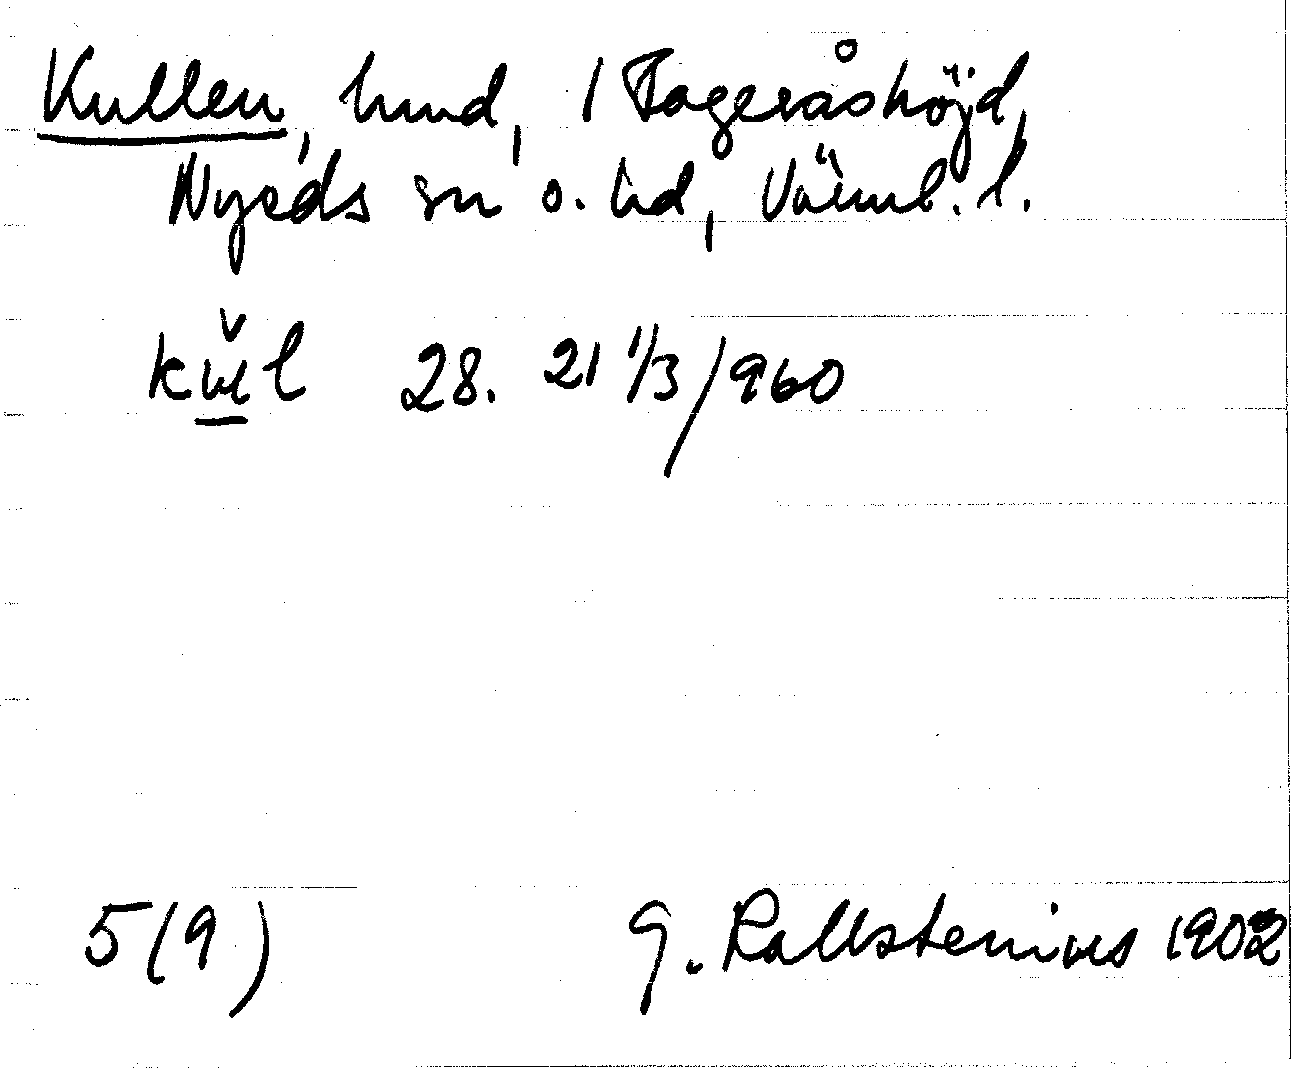 Kullen, hmd, 1 Fageråshöjd,
Nyeds sn o. hd, Värml. l.
28. 21 1/3/960
5(9) G. Kallstenius 1902